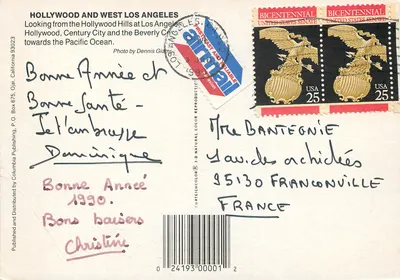 HOLLYWOOD AND WEST LOS ANGELES
Looking from the Hollywood Hills at Los Angeles,
Hollywood, Century City and the Beverly
towards the Pacific Ocean.
Photo by Dennis
Bonne Année et
Bonne Santé -
Je t'embrasse
Dominique
Bonne Année
1990.
Bons baisers
Christine
Published and Distributed by Columbia Publishing, P.O. Box 675, Ojai, California 93023
LOS ANGELES
air mail
BICENTENNIAL
USA
25
BICENTENNIAL
USA
25
Mme BANTEGNIE
orchidées
95130 FRANCONVILLE
FRANCE
0 24193 00001 2